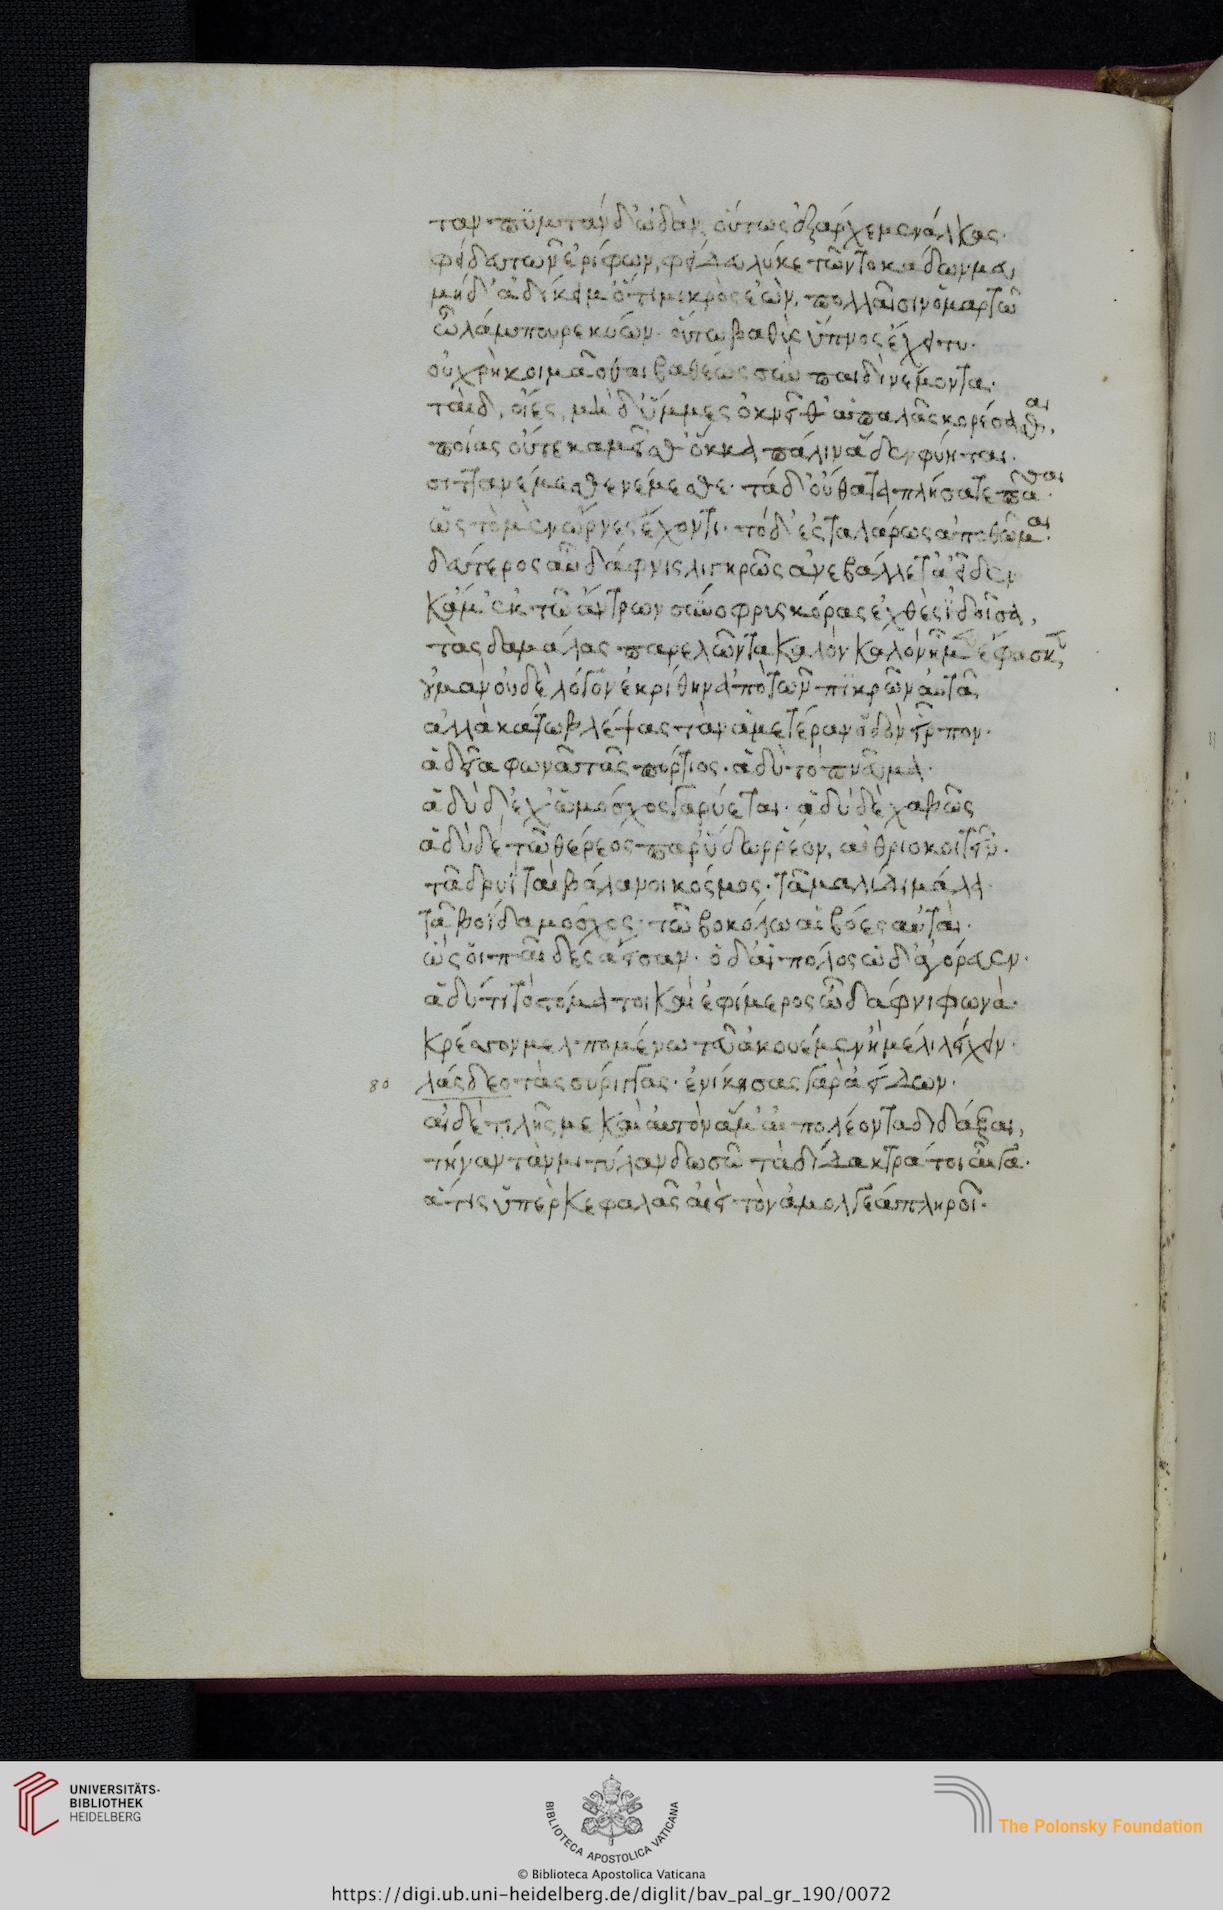 ταν πϋματάν δ' ὠδὰν οὕτως ἐξάρχε μενάλκας.
φείδευ τῶν ἐρίφων, φείδευ λύκε τῶν τοκάδων μευ,
μηδ' ἀδίκει μ' ὅτι μικρὸς ἐὼν, πολλαῖσιν ὅμαρτῶ
ὦ λάμπουρε κύων. οὕτω βαθὺς ὕπνος ἔχει τυ.
οὐ χρὴ κοιμᾶσθαι βαθέως σὺν παιδὶ νέμοντα.
ταὶ δ', οἵες, μὴ δ' ὔμμες ὀκνεῖθ' ἀπαλᾶς κορέσασθαι,
ποίας οὔτε καμεῖσθ' ὅκκα πάλιν ἅδε φύηται.
σιττα νέμεσθε νέμεσθε. τὰ δ' οὔθατα πλήσατε πᾶσαι.
ὥς τὸ μὲν ὥρνες ἔχοντι. τὸ δ' ἐς ταλάρως ἀποθῶμαι.
δεύτερος αὖ δάφνις λιγυρῶς ἀνεβάλλετ' ἀείδεν
κἀμ' ἐκ τῶ ἄντρων σύνοφρις κόρας ἐχθὲς ἰδοῖσα,
τὰς δαμάλας παρελῶντα καλὸν καλὸν ἦμεν ἔφασκεν,
οὐ μὰν οὐδὲ λόγον ἐκρίθην ἀπὸ τῶν πϊκρῶν αὐτᾶ,
ἀλλὰ κάτω βλέψας τὰν ἁμετέραν ὁδὸν εἷρπον.
ἁδεῖα φωνᾶ τᾶς πόρτιος. ἁδὺ τὸ πνεῦμα.
ἁδὺ δ' ἐχ' ὦ μόσχος γαρύεται. ἁδὺ δὲ χα βῶς
ἁδὺ δὲ τῶ θέρεος παρ' ὕδωρ ῥέον, αἰθριοκοιτεῖν.
τᾶ δρυῒ ταὶ βάλανοι κόσμος. τᾶ μαλίδι μάλα
τᾶ βοῒ δ' ἁ μόσχος. τῶ βοκόλω αἱ βόες αὐταί.
ὣς οἱ παῖδες ἄεισαν. ὁ δ' αἰπόλος ὧδ' ἀγόραεν.
ἁδύ τι τὸ στόμα τοι καὶ ἐφίμερος ὦ δάφνι φωνά.
κρέσσον μελπομένω τεῦ ἀκουέμεν ἢ μέλι λείχειν.
80 λάσδεο τὰς σύριγγας. ἐνίκησας γὰρ ἀείδων.
αἰ δέ τι λῇς με καὶ αὐτὸν ἅμ' αἰπολέοντα διδάξαι,
τήναν τὰν μιτύλαν δωσῶ τὰ δίδακτρά τοι αἶγα.
ἅτις ὕπὲρ κεφαλᾶς ἀεὶ τὸν ἀμολγέα πληροῖ.
UNIVERSITÄTS-
BIBLIOTHEK
HEIDELBERG
BIBLIOTECA APOSTOLICA VATICANA
The Polonsky Foundation
© Biblioteca Apostolica Vaticana
https://digi.ub.uni-heidelberg.de/diglit/bav_pal_gr_190/0072